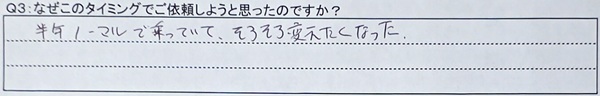 Q3:なぜこのタイミングでご依頼しようと思ったのですか?
半年ノーマルで乗っていて、そろそろ変えたくなった.